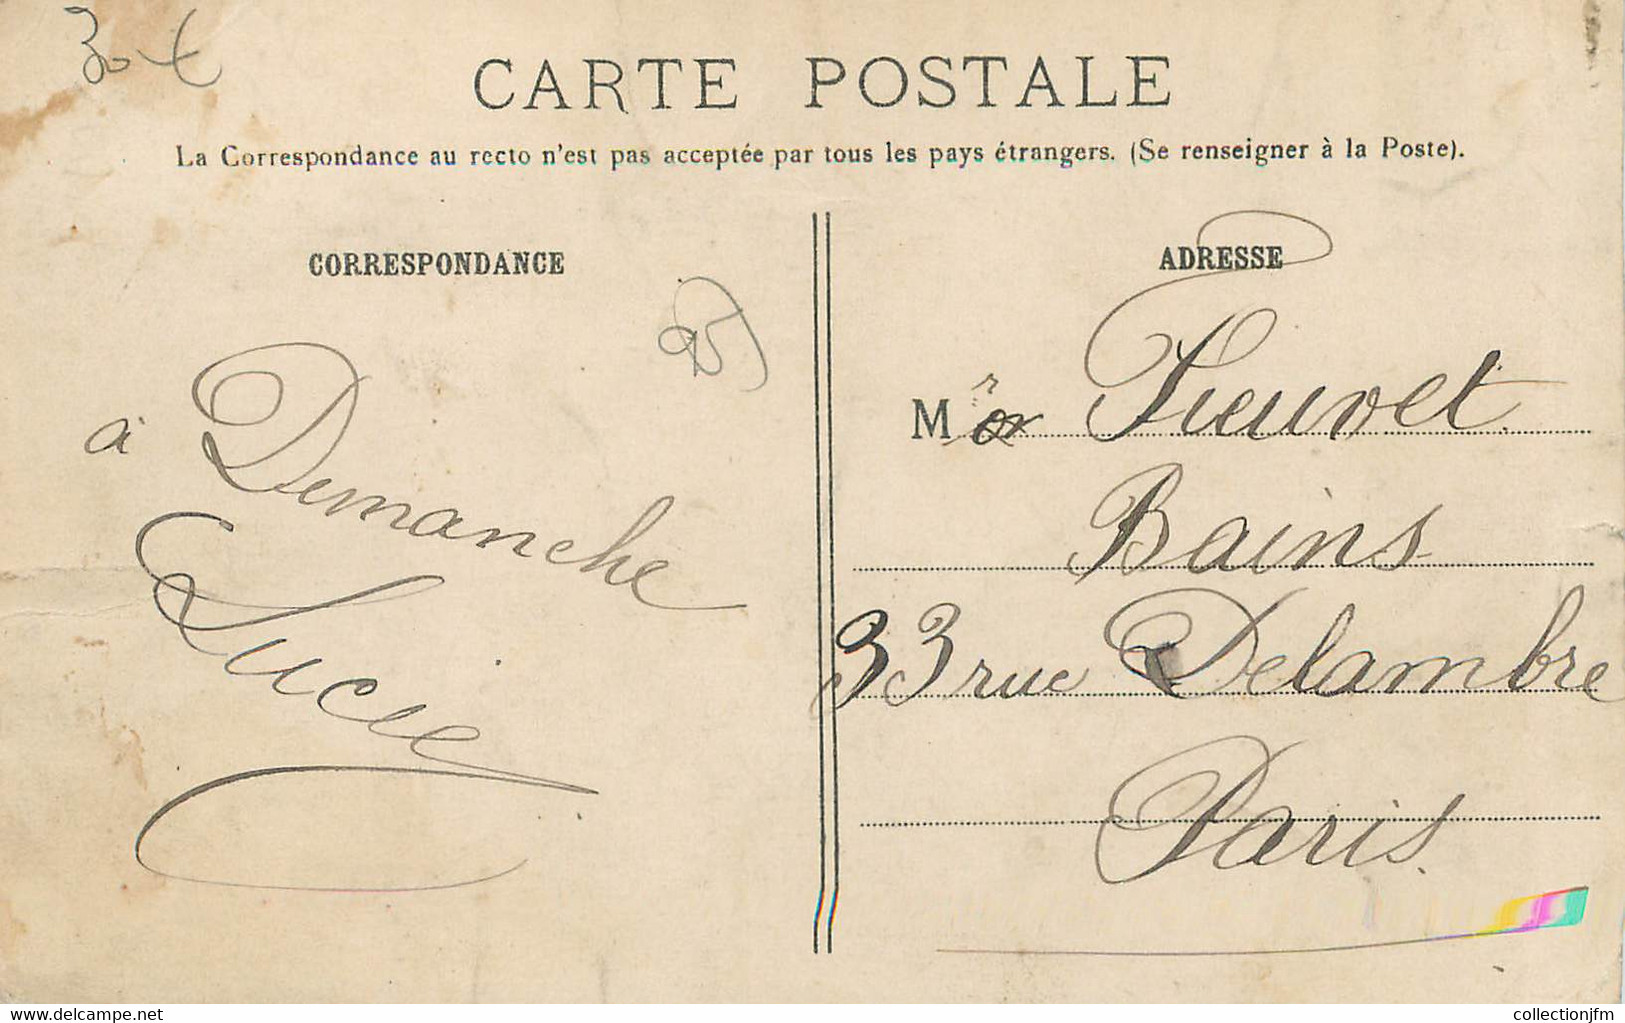 30 €
CARTE POSTALE
La Correspondance au recto n'est pas acceptée par tous les pays étrangers. (Se renseigner à la Poste).
CORRESPONDANCE
à Demanche
Lucie
ADRESSE
Mr Fieuvet
Bains
33 rue Delambre
Paris.
www.delcampe.net
collectionjfm